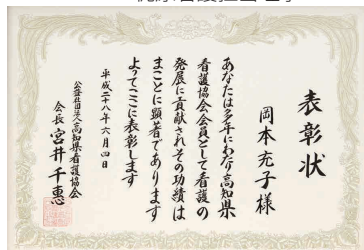 表彰状
岡本充子様
あなたは多年にわたり高知県
看護協会会員として看護の
発展に貢献されその功績は
まことに顕著であります
よってここに表彰します
平成二十八年六月四日
公益社団法人高知県看護協会
会長 宮井千惠